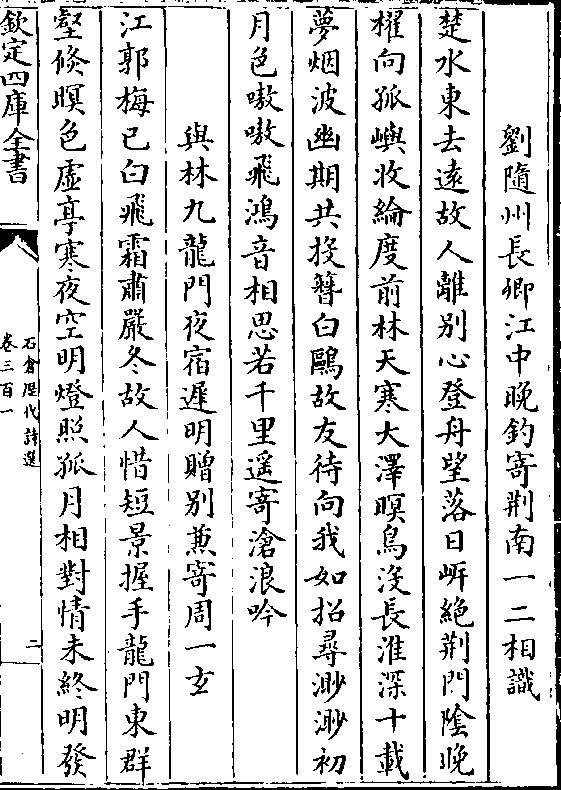 劉隨州長卿江中晚釣寄荆南一二相識
楚水東去遠故人離别心登舟望落日㟁絶荆門隂晚
櫂向孤嶼收綸度前林天寒大澤暝鳥沒長淮深十載
夢烟波幽期共投簪白鷗故友待向我如招尋渺渺初
月色嗷嗷飛鴻音相思若千里遥寄滄浪吟
與林九龍門夜宿遲明贈别兼寄周一玄
江郭梅已白飛霜肅嚴冬故人惜短景握手龍門東群
壑倏暝色虛亭寒夜空明燈照孤月相對情未終明發
欽定四庫全書
石倉歴代詩選
卷三百一
二